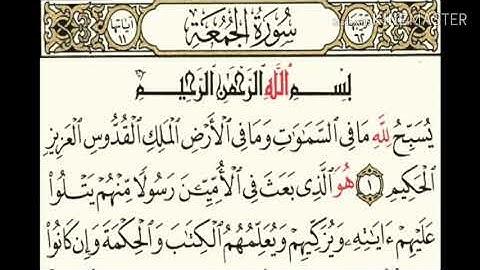 سُورَةُ الجُمُعَةِ
آياتها ١١
بِسْمِ اللَّهِ الرَّحْمَٰنِ الرَّحِيمِ
يُسَبِّحُ لِلَّهِ مَا فِى السَّمَٰوَٰتِ وَمَا فِى الْأَرْضِ الْمَلِكِ الْقُدُّوسِ الْعَزِيزِ
الْحَكِيمِ ١ هُوَ الَّذِى بَعَثَ فِى الْأُمِّيِّـۧنَ رَسُولًا مِّنْهُمْ يَتْلُوا۟
عَلَيْهِمْ ءَايَٰتِهِۦ وَيُزَكِّيهِمْ وَيُعَلِّمُهُمُ الْكِتَٰبَ وَالْحِكْمَةَ وَإِن كَانُوا۟